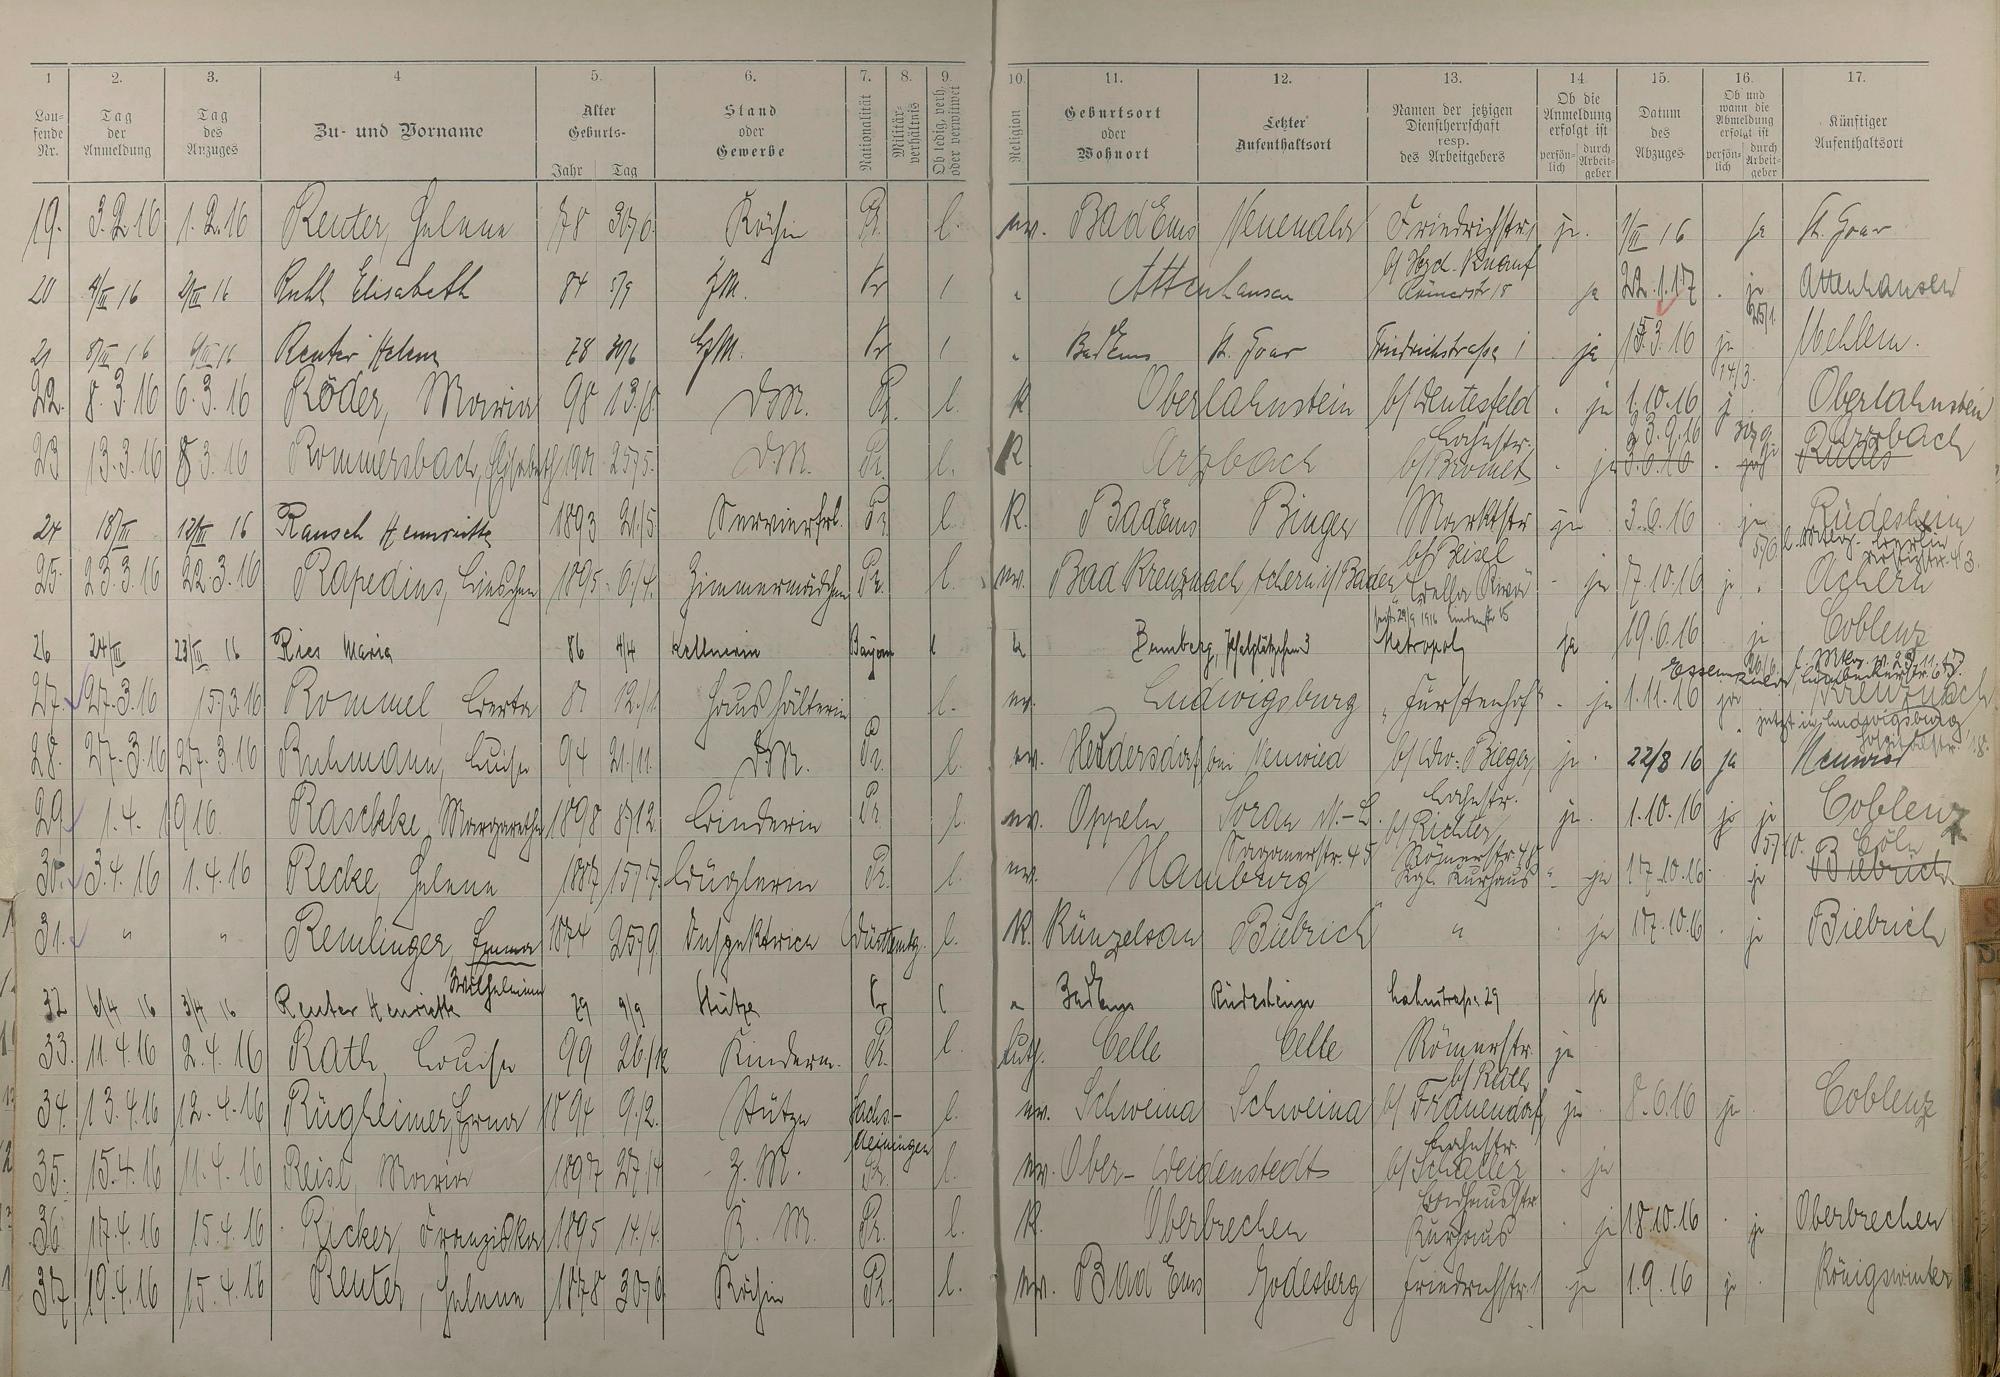 1 2. 3. 4 5. 6. 7. 8. 9. 10. 11. 12. 13. 14. 15. 16. 17.
Lau-fende Nr. Tag der Anmeldung Tag des Anzuges Zu- und Vorname Alter Geburts- Jahr Tag Stand oder Gewerbe Nationalität Militär-verhältnis Ob ledig, verh. oder verwitwet Religion Geburtsort oder Wohnort Letzter Aufenthaltsort Namen der jetzigen Dienstherrschaft resp. des Arbeitgebers Ob die Anmeldung erfolgt ist persön-lich durch Arbeit-geber Datum des Abzuges Ob und wann die Abmeldung erfolgt ist persön-lich durch Arbeit-geber Künftiger Aufenthaltsort
19. 3.2.16 1.2.16 Reuter, Helene 78 30/6 Köchin Pr. l. ev. Bad Ems Neuenahr Friedrichstr. 1 ja. 1/III 16 ja St. Goar
20 4/III 16 2/III 16 Ruhl Elisabeth 84 5/9 ZM. Pr l " Attenhausen b/ Hrch. Knauf Römerstr 18 ja 22.1.17 . ja 25/1. Attenhausen
21 8/III 16 6/III 16 Reuter Helene 78 30/6 Pr l " Bad Ems St. Goar Friedrichstraße 1 . ja 15.3.16 ja 14/3. Mehlem.
22. 8.3.16 6.3.16 Röder, Maria 98 13/8 DM. Pr. l. K Oberlahnstein b/ Deutesfeld . ja 1.10.16 ja Oberlahnstein
23 13.3.16 8.3.16 Rommersbach, Elisabeth 1901 25/5. DM. Pr. l. K. Arzbach Lahnstr. b/ Bromet . ja 23.9.16 3.6.16 . Arzbach
24 18/III 12/III 16 Rausch Henriette 1893 21/5 Servierfrl. Pr l. K. Bad Ems Bingen Marktstr b/ Beisel ja 3.6.16 . ja 5/6 Rüdesheim
25. 23.3.16 22.3.16 Rapedius, Lieschen 1895 6/4. Zimmermädchen Pr. l. ev. Bad Kreuznach Achern i/ Baden - ja 7.10.16 ja . Achern
26 24/III 23/III 16 Ries Maria 86 4/4 Kellnerin Bayern l k Bamberg, Metropol ja 19.6.16 ja Coblenz
27. 27.3.16 15/3.16 Rommel, Berta 81 12/1 Haushälterin l. ev. Ludwigsburg "Fürstenhof" - ja 1.11.16 Kreuznach
jetzt in Ludwigsburg
28. 27.3.16 27.3.16 Ruhmann, Luise 94 21/11. DM. Pr. l. ev. Heddersdorf bei Neuwied b/ Ww. Bieger, Lahnstr. ja . 22/8 16 ja Neuwied
29. 1.4.1916. Raschke, Margarethe 1898 8/12. Kinderm Pr. l. ev. Oppeln Soran N.-L. Saganerstr. 45 b/ Richter, Römerstr. 40 ja. 1.10.16 ja 5/10. Coblenz
30. 3.4.16 1.4.16 Recke, Helene 1887 15/7. Büglerin Pr. l. ev. Hamburg Kgl. Kurhaus - ja 17.10.16. ja Cöln Biebrich
31. " " Remlinger, Emma Wilhelmine 1874 25/9. Inspektrice Württembg. l. K. Künzelsau Biebrich " . ja 17.10.16 . ja Biebrich
32 6/4 16 3/4 16 Reuter Henriette 79 9/9 Stütze Pr l " Bad Ems Rüdesheim Lahnstraße 29 ja
33. 11.4.16 2.4.16 Rath, Louise 99 26/12 Kinderm. Pr. l. luth. Celle Celle Römerstr. b/ Rath ja
34. 13.4.16 12.4.16 Rügheimer, Erna 1894 9/2. Stütze Sachs-Meiningen l. ev. Schweina Schweina b/ Frauendorf, Lahnstr. ja . 8.6.16 ja . Coblenz
35. 15.4.16 11.4.16 Reise, Maria 1897 27/4 Z.M. Pr. l. ev. Ober-Weidenstedt b/ Schäfer . ja
36 17.4.16 15.4.16 . Ricker, Franziska 1895 14/4. K.M. Pr. l. K. Oberbrechen Kurhaus . ja 18.10.16 . ja Oberbrechen
37 19.4.16 15.4.16 Reuter, Helene 1878 30/6 Köchin Pr. l. ev. Bad Ems Godesberg Friedrichstr. 1 - ja 1.9.16 ja . Königswinter